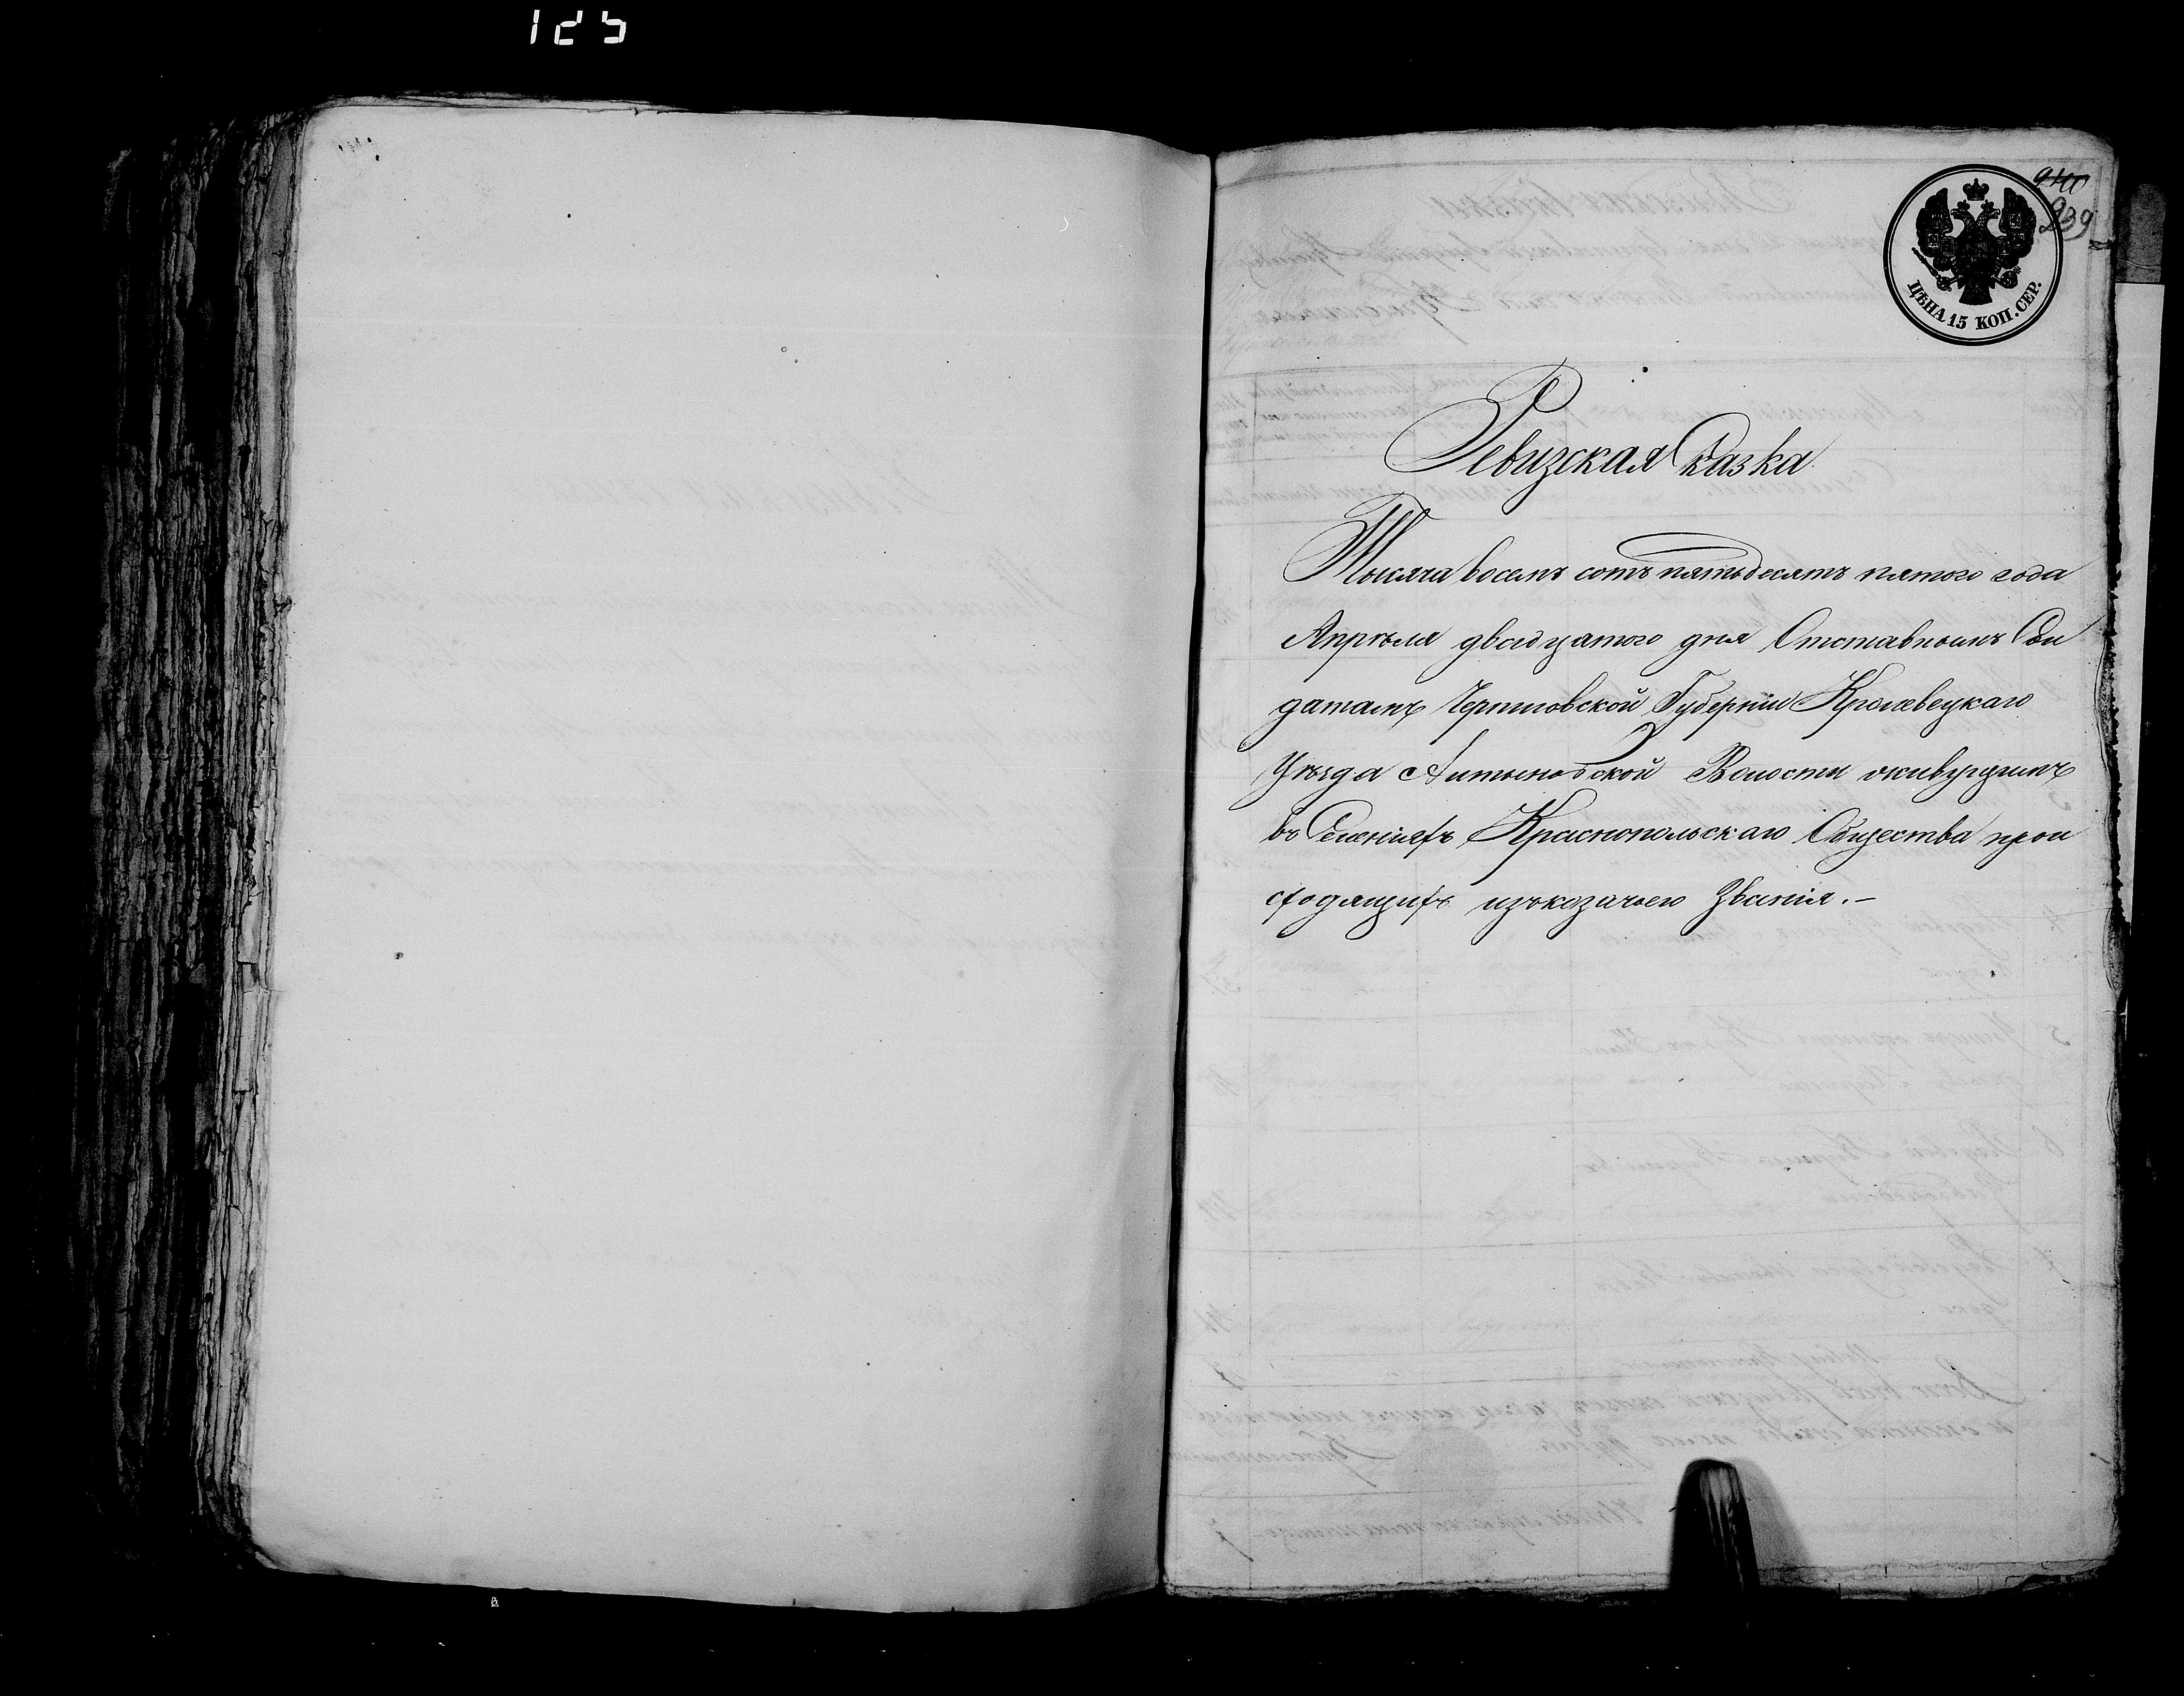 125
940
939
ЦѢНА 15 КОП. СЕР.
Ревизская Сказка
Тысяча восемъ сотъ пятьдесятъ пятого года
Апрѣля двадцатого дня Отставнымъ Сол
датамъ Черниговской Губерніи Кролевецкаго
Уѣзда Алтыновской Волости живущимъ
въ Селеніяхъ Краснопольскаго Общества прои
сходящихъ изъ козачьего Званія.-